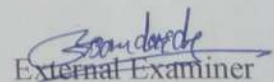 External Examiner